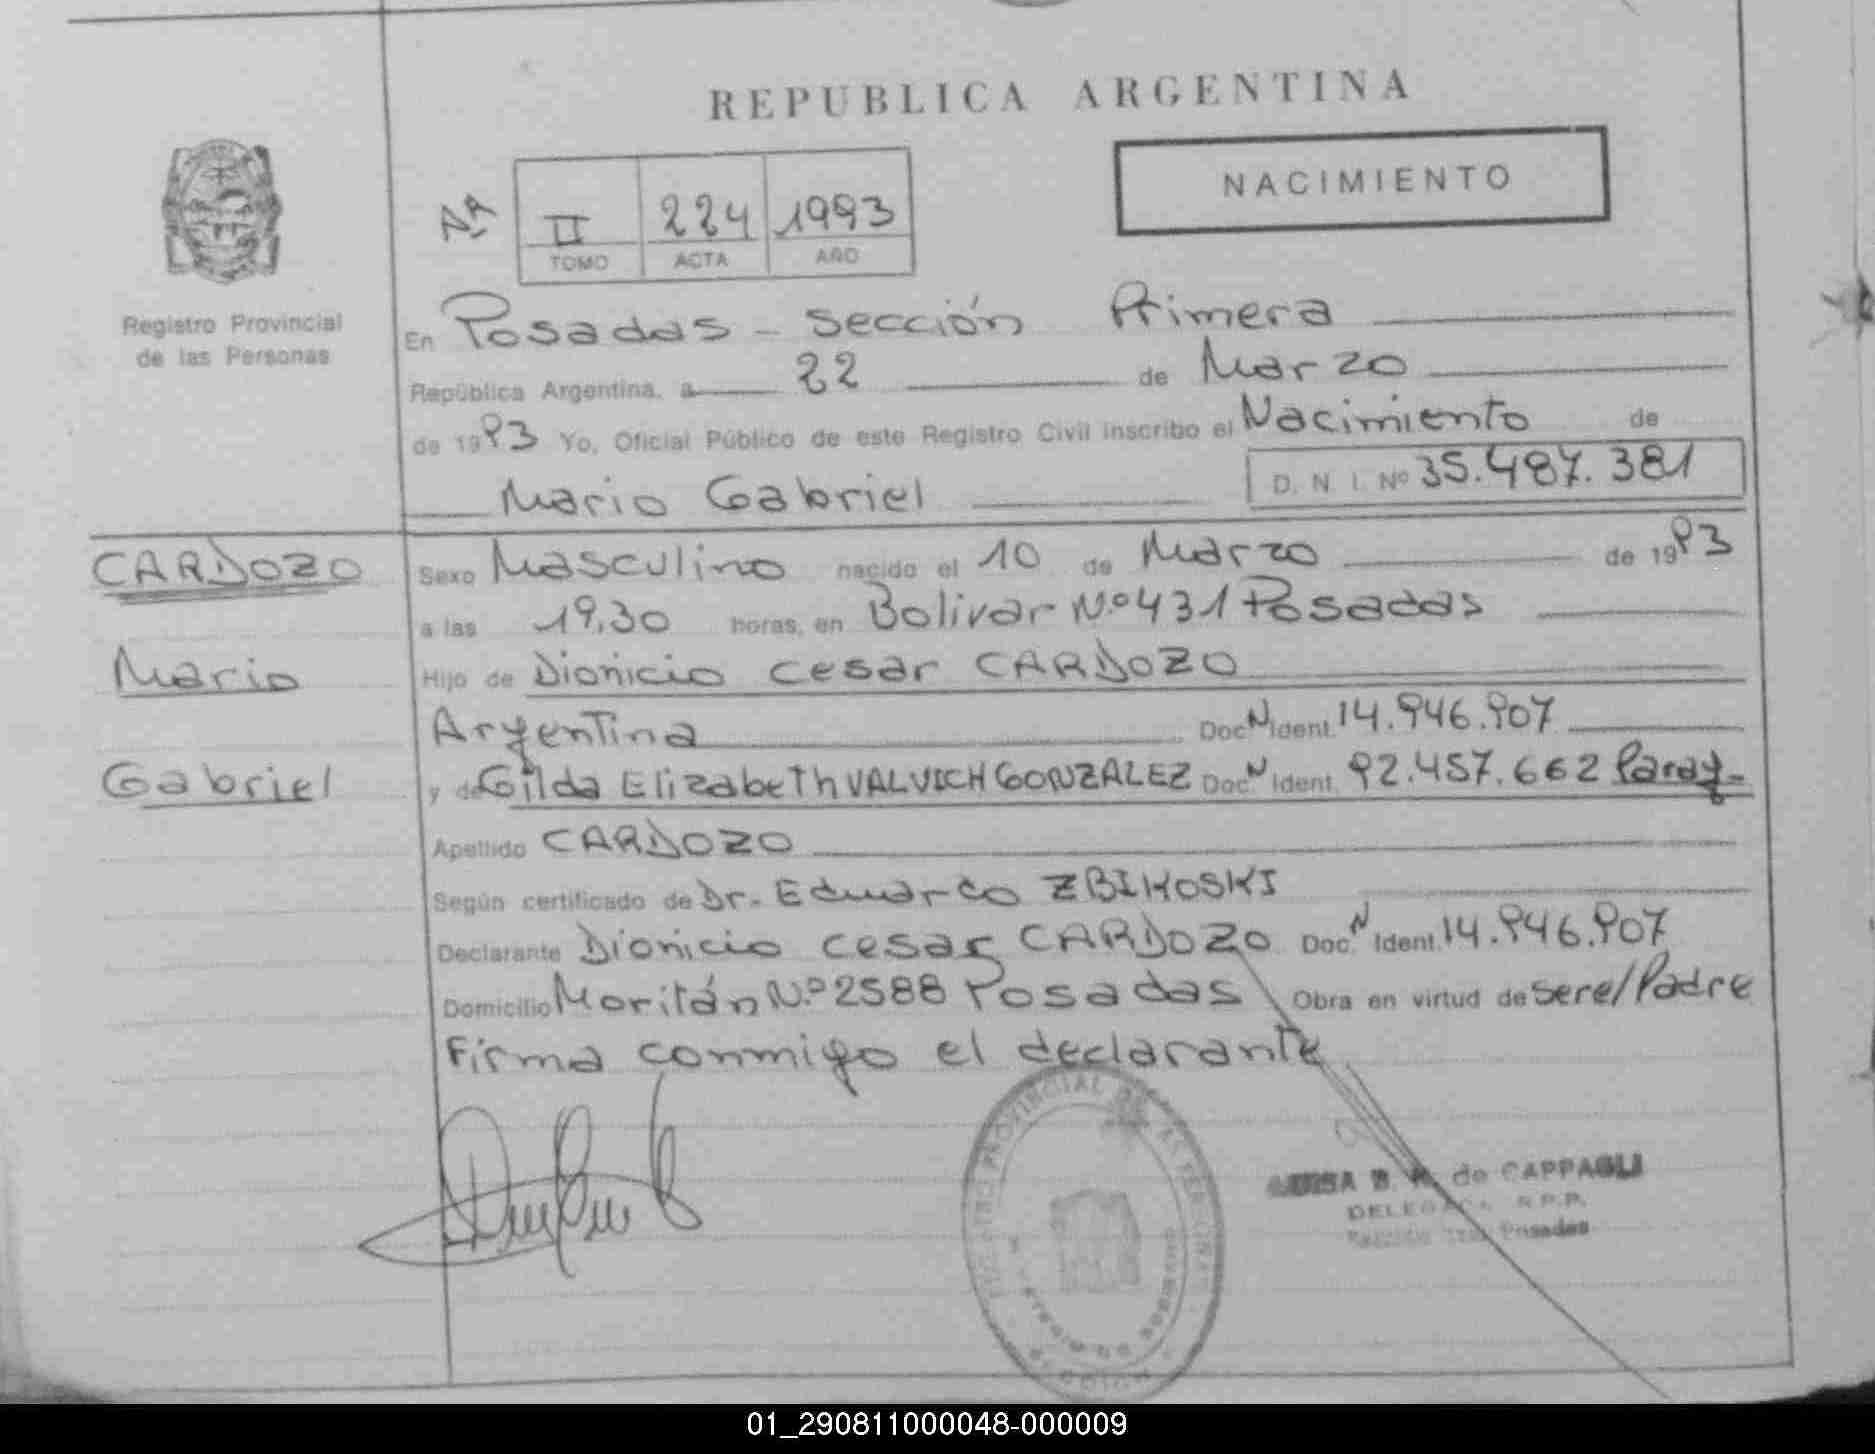 REPUBLICA ARGENTINA
NACIMIENTO
Nº II 224 1993
TOMO ACTA AÑO
Registro Provincial
de las Personas
En Posadas - sección Primera
República Argentina, a 22 de Marzo
de 1993 Yo, Oficial Público de este Registro Civil inscribo el Nacimiento de
Mario Gabriel D. N. I. Nº 35.487.381
CARDOZO
Mario
Gabriel
Sexo Masculino nacido el 10 de Marzo de 1993
a las 19,30 horas, en Bolivar N.º 431 Posadas
Hijo de Dionicio Cesar CARDOZO
Argentina Doc. N Ident. 14.946.907
y de Gilda Elizabeth VALVICH GONZALEZ Doc. N Ident. 92.457.662 Parag-
Apellido CARDOZO
Según certificado de Dr. Eduardo ZBIKOSKI
Declarante Dionicio Cesar CARDOZO Doc. N Ident. 14.946.907
Domicilio Moritán N.º 2588 Posadas Obra en virtud de sere/Padre
Firma conmigo el declarante
REGISTRO PROVINCIAL DE LAS PERSONAS
B. de CAPPAGLI
DELEGADA R.P.P.
Sección 1ra Posadas
01_290811000048-000009